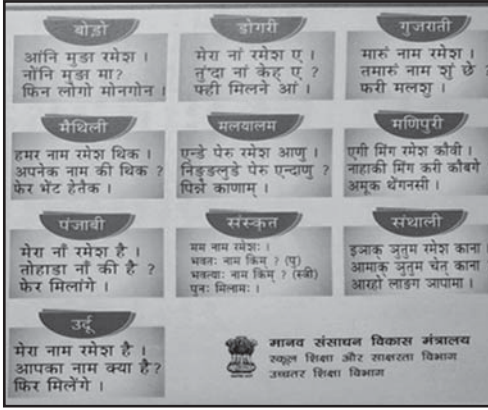 बोड़ो
आंनि मुङा रमेश ।
नोंनि मुङा मा?
फिन लोगो मोनगोन ।
डोगरी
मेरा नां रमेश ए ।
तुं'दा नां केह् ए ?
फ्ही मिलने आं ।
गुजराती
मारुं नाम रमेश ।
तमारुं नाम शुं छे ?
फरी मलशु ।
मैथिली
हमर नाम रमेश थिक ।
अपनेक नाम की थिक ?
फेर भेंट हेतैक ।
मलयालम
एन्डे पेरु रमेश आणु ।
निङ्ङलुडे पेरु एन्दाणु ?
पिन्ने काणाम् ।
मणिपुरी
एगी मिंग रमेश कौवी ।
नाहाकी मिंग करी कौबगे
अमूक थेंगनसी ।
पंजाबी
मेरा नाँ रमेश है ।
तोहाडा नाँ की है ?
फेर मिलांगे ।
संस्कृत
मम नाम रमेशः ।
भवतः नाम किम् ? (पु)
भवत्याः नाम किम् ? (स्त्री)
पुनः मिलामः ।
संथाली
इञाक् ञुतुम रमेश काना
आमाक् ञुतुम चेत् काना
आरहों लाङग ञापामा ।
उर्दू
मेरा नाम रमेश है ।
आपका नाम क्या है?
फिर मिलेंगे ।
मानव संसाधन विकास मंत्रालय
स्कूल शिक्षा और साक्षरता विभाग
उच्चतर शिक्षा विभाग